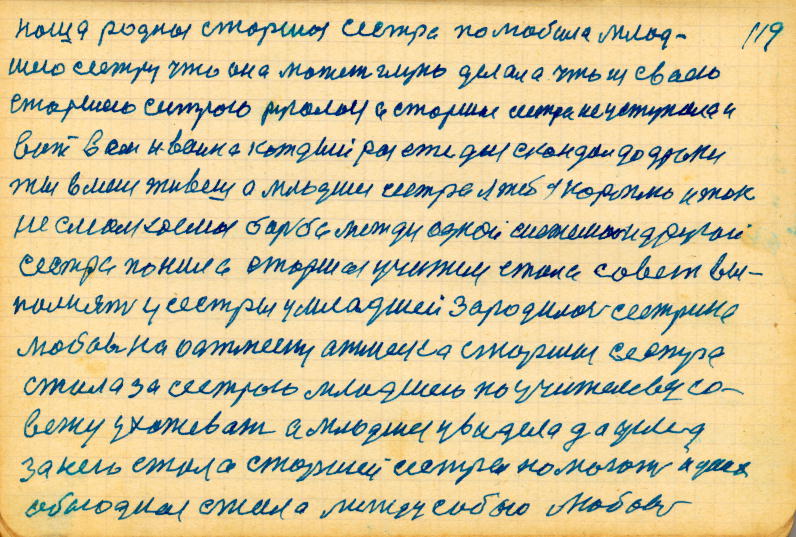 наша родная старшая сестра полюбила млад- 119
шею сестру что она может глупо делала что и свою
старшею сестрою ругалась а старшая сестра не уступала и
вот в семи война каждый раз ежедня скандал до драки
ты в меня живеш а младшая сестра я тебя кормлю и так
не смалкаемая барьба между одной системой и другой
сестра поняла старшая учителя стала совет вы-
полнят и сестры у младшей зародилась сестрина
любовь на отметку отметка старшая сестра
стала за сестрою младшею по учителеву со-
вету ухаживат а младшая увидела да уклад
за нею стала старшей сестры помогать и
обаюдная стала между собою любовь